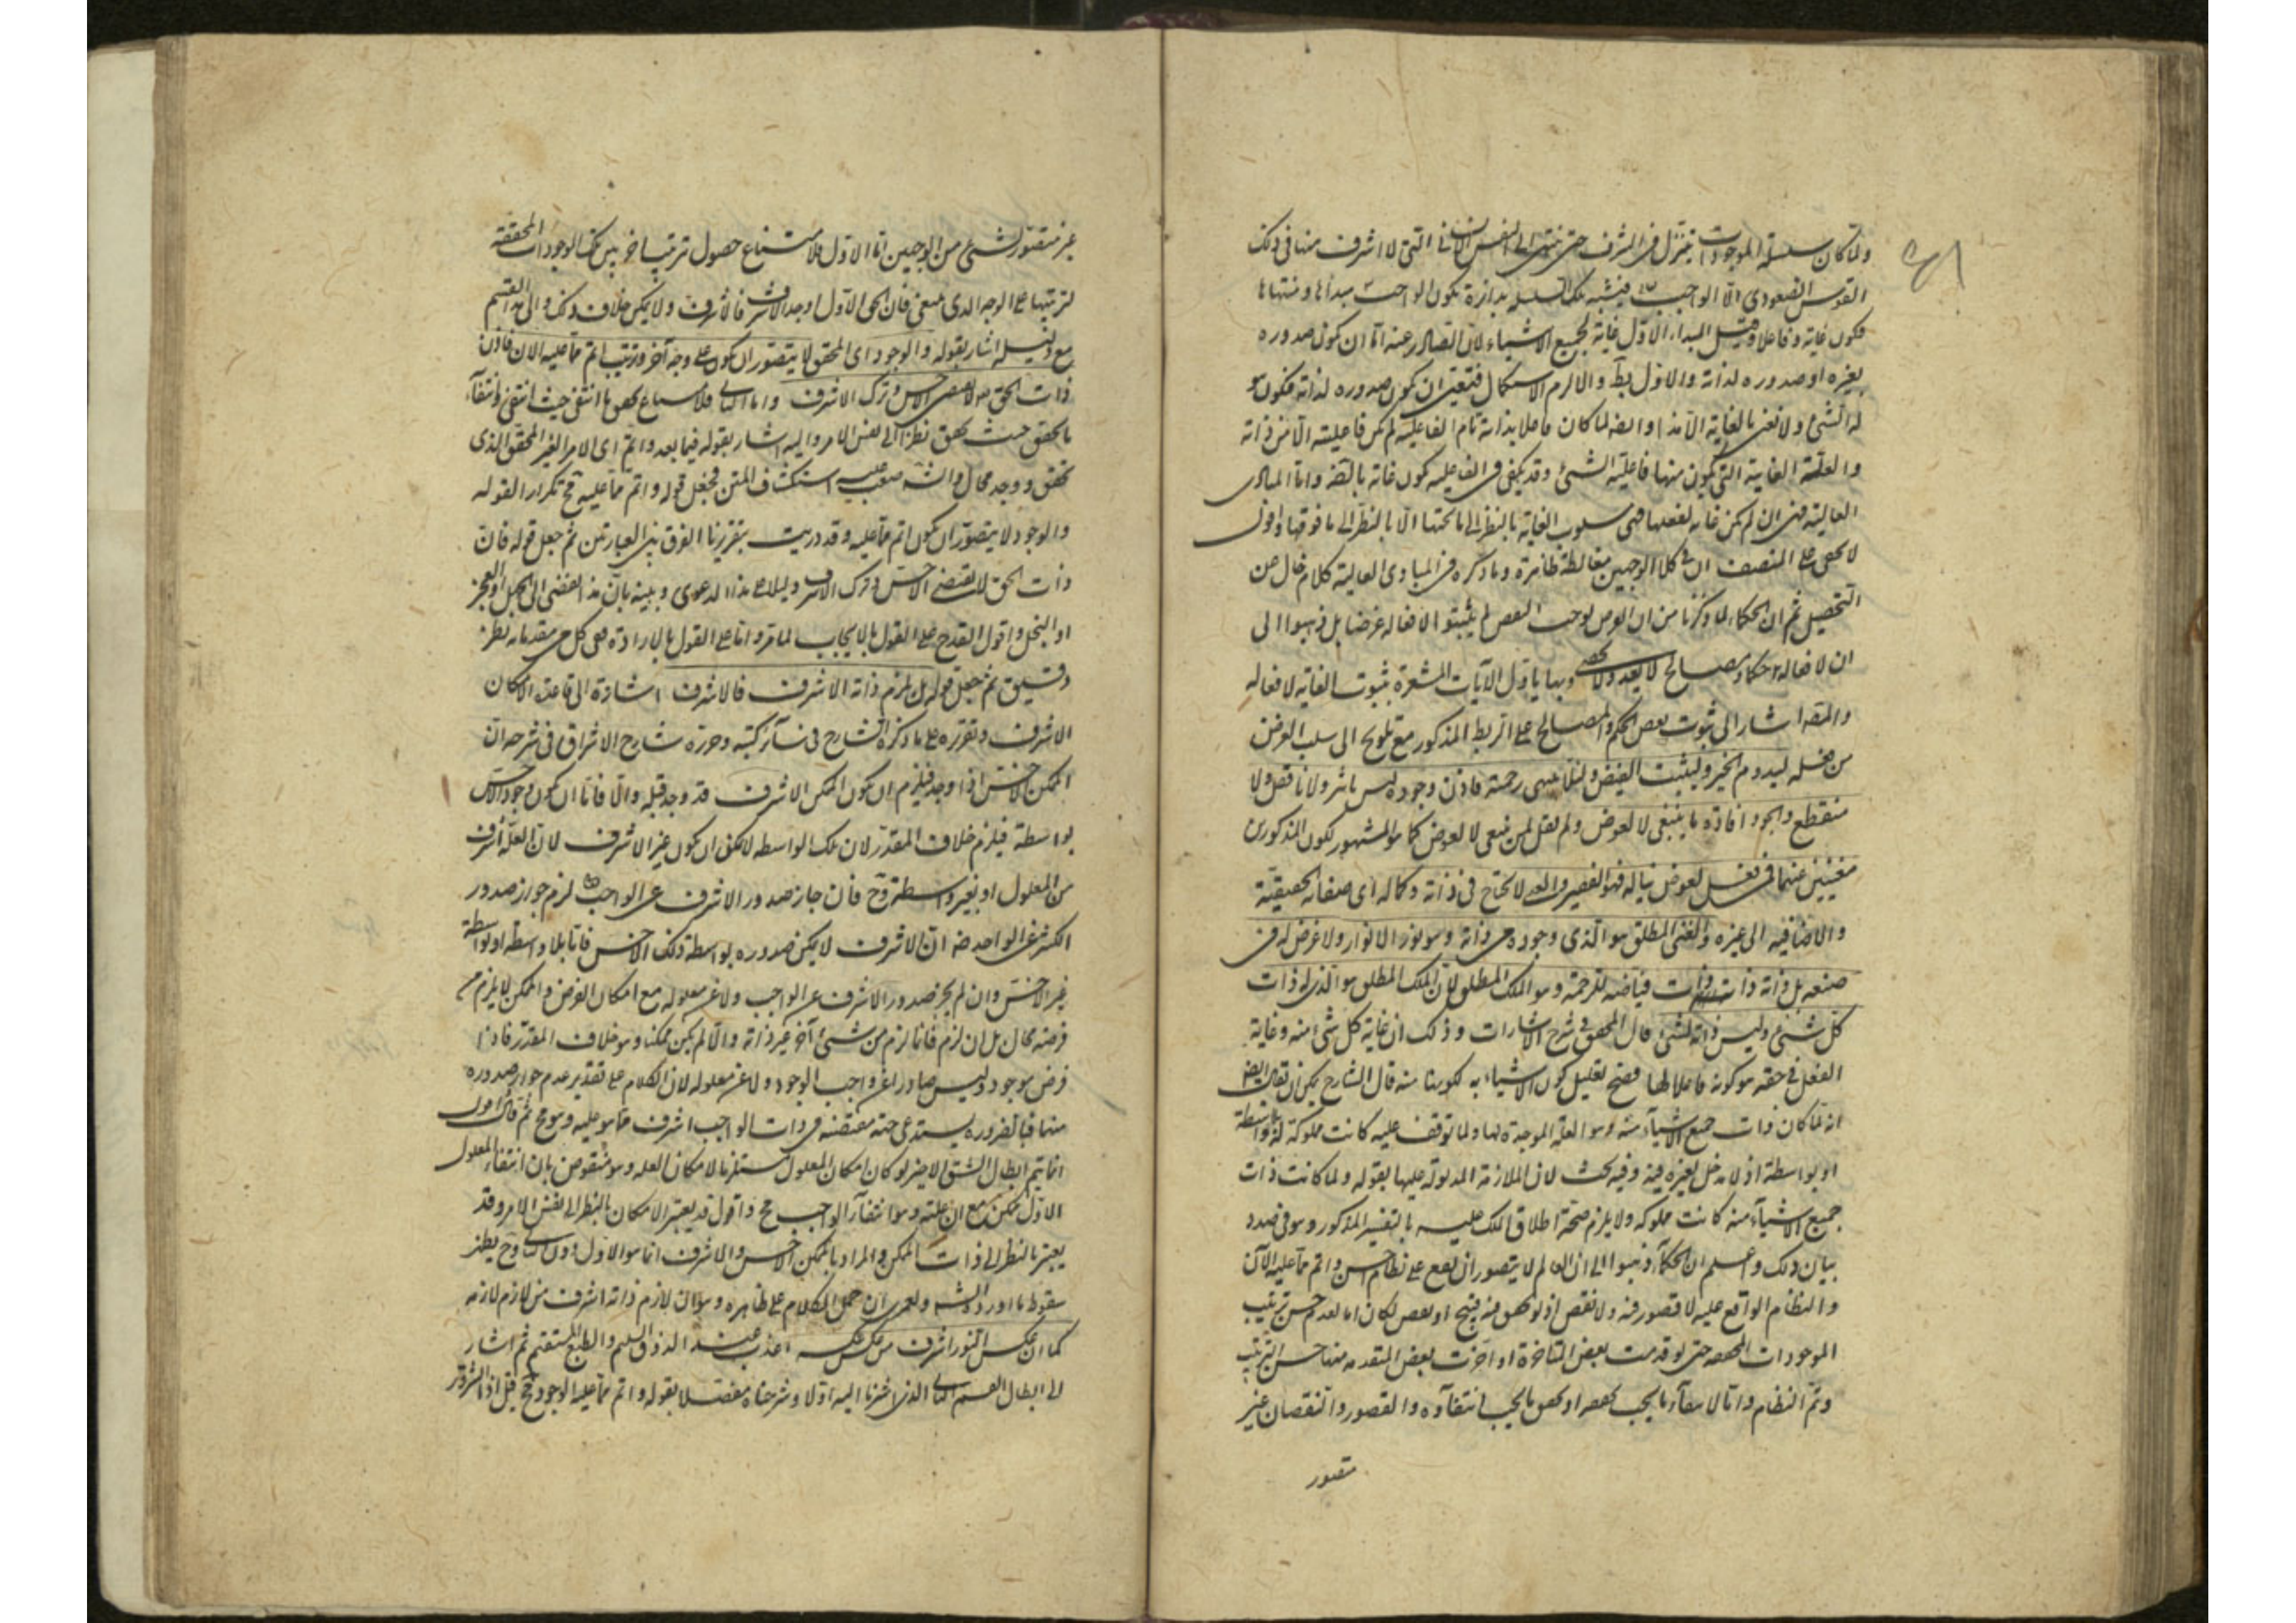 ولما كان سلسلة الموجودات يتنزل فى الشرف حتى ينتهى الى النفس التى لا اشرف منها فى ذلك
القوس الصعودى الا الواجب فيشبه تلك السلسلة بدائرة يكون الواجب مبدأها ومنتهاها
فكون غاية وفاعلا وقيل المبداء الاول غاية لجميع الاشياء لان الصادر عنه اما ان يكون صدوره
بغيره او صدوره لذاته والاول بط والا لزم الاستكمال فتعين ان يكون صدوره لذاته فيكون هو
له الشئ ولا نعنى بالغاية الا هذا وايضا لما كان فاعلا بذاته تام الفاعلية لم يكن فاعليته الا من ذاته
والعلة الغاية التى يكون منها فاعلية الشئ وقد يكفى فى الفاعلية كون غاية واما المبادى
العالية فهى ان لم يكن غاية لفعلها فهى مسلوب الغاية بالنظر الى ما تحتها الا بالنظر الى ما فوقها واقول
لا يخفى على المنصف ان كلا الوجهين مغالطة ظاهرة وما ذكره فى المبادى العالية كلام خال عن
التحصيل ثم ان الحكماء لما ذكرنا من ان يوجب النقص لم يثبتوا لافعاله غرضا بل ذهبوا الى
ان لافعاله حكما ومصالح لا يعد ولا يحصى وبها ياول الآيات المشعرة بثبوت الغاية لافعاله
والمصنف اشار الى ثبوت بعض الحكم والمصالح على الربط المذكور مع تلويح الى سلب الغرض
من فعله ليدوم الخير وليثبت الفيض ولئلا رحمة فاذن وجوده ليس ولا ناقص ولا
منقطع والجود افادة ما ينبغى لا لعوض ولم يقل لمن ينبغى لا لعوض كما هو المشهور لكون المذكورين
مغنيين عنهما فى فعل لعوض يناله فهو الفقير لا يحتاج فى ذاته وكماله اى صفاته الحقيقية
والاضافية الى غيره والغنى المطلق هو الذى وجوده من ذاته وهو نور الانوار ولا غرض له فى
صنعه بل ذاته ذات فياضة للرحمة وهو الملك المطلق لان الملك المطلق هو الذى له ذات
كل شئ وليس ذاته لشئ قال المحقق فى شرح الاشارات وذلك ان غاية كل شئ منه وغاية
الفعل فى حقه هو كونه فاعلا لها فصح تعليل كون الاشياء به بكونها منه قال الشارح يمكن ان يقال ايضا
انه لما كان ذات جميع الاشياء منه وهو العلة الموجدة لها ولما توقف عليه كانت مملوكة له بلا واسطة
او بواسطة اذ لا دخل لغيره فيه وفيه بحث لان الملازمة المدلول عليها بقوله ولما كانت ذات
جميع الاشياء منه كانت مملوكة ولا يلزم صحة اطلاق الملك عليه بالتفسير المذكور وهو فى صدد
بيان ذلك واعلم ان الحكماء ذهبوا الى ان العالم لا يتصور ان يقع على نظام احسن واتم مما عليه الآن
والنظام الواقع عليه لا قصور فيه ولا نقص اذ لو تحقق فيه قبح او نقص لكان اما لعدم حسن ترتيب
الموجودات المحققة حتى لو قدمت بعض المتاخرة او اخرت بعض المتقدمة منها حسن الترتيب
وتم النظام واما لانتفاء ما يجب تحققه او تحقق ما يجب انتفاؤه والقصور والنقصان غير
متصور
غير متصور لشئ من الوجهين اما الاول فلامتناع حصول ترتيب آخر بين تلك الوجودات المحققة
لترتبها على الوجه الذى معنى فان الحق الاول اوجد الاشرف فالاشرف ولا يمكن خلاف ذلك والى هذا القسم
مع دليله اشار بقوله والوجود اى المحقق لا يتصور ان يكون على وجه آخر وترتيب اتم مما عليه الان فان
ذات الحق لا يقتضى الاخس وترك الاشرف واما الثانى فلامتناع تحقق ما انتفى حيث انتفى وانتفاء
ما تحقق حيث تحقق نظرا الى نفس الامر واليه اشار بقوله فيما بعد واتم اى الامر الغير المحقق الذى
تحقق ووجد محال والشه صعب عليه استكشاف المتن فجعل قوله واتم مما عليه تكرار القوله
والوجود لا يتصور ان يكون اتم مما عليه وقد دريت بتقريرنا الفرق بين العبارتين ثم جعل قوله فان
ذات الحق لا يقتضى الاخس وترك الاشرف دليلا على هذا الدعوى وبينه بان هذا يفضى الى الجهل او العجز
او البخل واقول القدح على القول بالايجاب لما مر واما على القول بالارادة ففى كل من مقدماته نظر
دقيق ثم جعل قوله بل يلزم ذاته الاشرف فالاشرف اشارة الى قاعدة الامكان
الاشرف وتقريره على ما ذكره الشارح فى سائر كتبه وحرره شارح الاشراق فى شرحه ان
الممكن الاخس اذا وجد فيلزم ان يكون الممكن الاشرف قد وجد قبله والا فاما ان يكون وجود الاخس
بواسطة فيلزم خلاف المقدر لان تلك الواسطة لا يمكن ان يكون غير الاشرف لان العلة اشرف
من المعلول او بغير واسطة وح فان جاز صدور الاشرف عن الواجب لزم جواز صدور
الكثير عن الواحد ضرورة ان الاشرف لا يمكن صدوره بواسطة ذلك الاخس فاما بلا واسطة او بواسطة
غير الاخس وان لم يجز صدور الاشرف عن الواجب ولا عن معلوله مع امكان الفرض والممكن لا يلزم من
فرضه محال بل ان لزم فانما لزم من شئ آخر غير ذاته والا لم يكن ممكنا وهو خلاف المقدر فاذا
فرض موجود وليس صادرا عن واجب الوجود ولا عن معلوله لان الكلام على تقدير عدم جواز صدوره
منهما فبالضرورة يستدعى جهة مقتضية فى ذات الواجب اشرف مما هو عليه وهو مح ثم قال اقول
انما يتم ابطال الشق الاخير لو كان امكان المعلول مستلزما لامكان العلة وهو منقوض بان انتفاء المعلول
الاول ممكن مع ان علته وهو انتفاء الواجب مح واقول قد يعتبر الامكان بالنظر الى نفس الامر وقد
يعتبر بالنظر الى ذات الممكن والمراد بالممكن الاخس والاشرف انما هو الاول دون الثانى وح يظهر
سقوط ما اورده الشه ولعمرى ان حمل الكلام على ظاهره وهو ان لازم ذاته اشرف من لازم لازمه
كما ان عكس النور اشرف من عكس عكسه اعذب عند الذوق السليم والطبع المستقيم ثم اشار
الى ابطال القسم الثانى الذى اشرنا اليه اولا وشرحناه مفصلا بقوله واتم مما عليه الوجود مح قيل